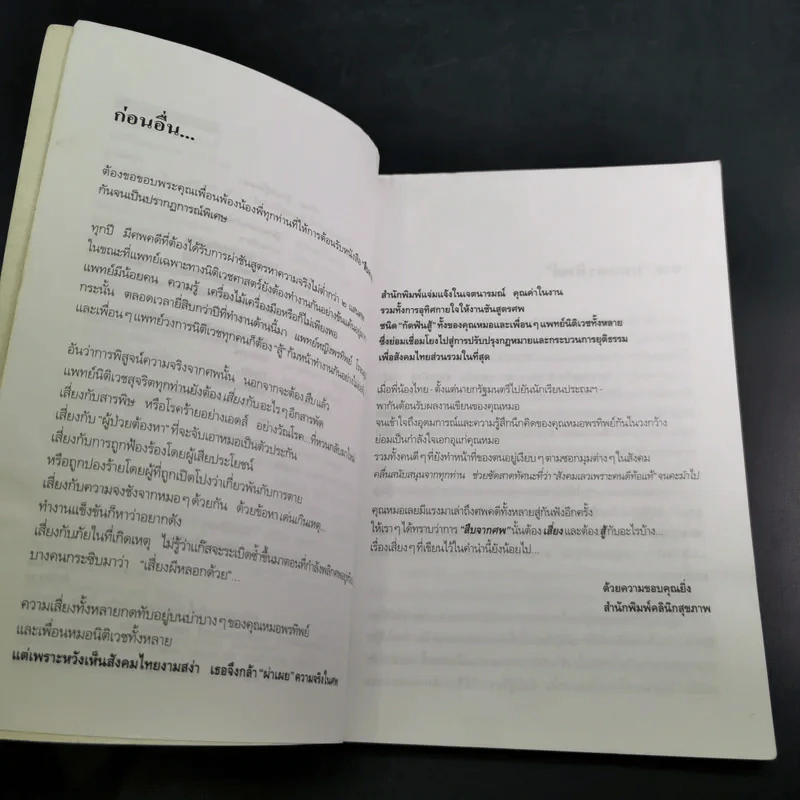 ก่อนอื่น...
ต้องขอขอบพระคุณเพื่อนพ้องน้องพี่ทุกท่านที่ให้การต้อนรับหนังสือ
กันจนเป็นปรากฏการณ์พิเศษ
ทุกปี มีศพคดีที่ต้องได้รับการผ่าชันสูตรหาความจริงไม่ต่ำกว่า ๒
ในขณะที่แพทย์เฉพาะทางนิติเวชศาสตร์ยังต้องทำงานกันอย่าง
แพทย์มีน้อยคน ความรู้ เครื่องไม้เครื่องมือหรือก็ไม่เพียงพอ
กระนั้น ตลอดเวลายี่สิบกว่าปีที่ทำงานด้านนี้มา แพทย์หญิงพรทิพย์
และเพื่อนๆ แพทย์วงการนิติเวชทุกคนก็ต้อง "สู้" ก้มหน้าทำงานกันอย่าง
อันว่าการพิสูจน์ความจริงจากศพนั้น นอกจากจะต้อง สืบ แล้ว
แพทย์นิติเวชสุจริตทุกท่านยังต้อง เสี่ยง กับอะไรๆ อีกสารพัด
เสี่ยงกับสารพิษ หรือโรคร้ายอย่างเอดส์ อย่างวัณโรค.. ที่หวนกลับมาใหม่
เสี่ยงกับ "ผู้ป่วยต้องหา" ที่จะจับเอาหมอเป็นตัวประกัน
เสี่ยงกับการถูกฟ้องร้องโดยผู้เสียประโยชน์
หรือถูกปองร้ายโดยผู้ที่ถูกเปิดโปงว่าเกี่ยวพันกับการตาย
เสี่ยงกับความจงชังจากหมอๆ ด้วยกัน ด้วยข้อหา เด่นเกินเหตุ...
ทำงานแข็งขันก็หาว่าอยากดัง
เสี่ยงกับภัยในที่เกิดเหตุ ไม่รู้ว่าแก๊สจะระเบิดซ้ำขึ้นมาตอนที่กำลังพลิกศพอยู่หรือ
บางคนกระซิบมาว่า "เสี่ยงผีหลอกด้วย"...
ความเสี่ยงทั้งหลายกดทับอยู่บนบ่าบางๆ ของคุณหมอพรทิพย์
และเพื่อนหมอนิติเวชทั้งหลาย
แต่เพราะหวังเห็นสังคมไทยงามสง่า เธอจึงกล้า "ผ่าเผย" ความจริงในศพ
สำนักพิมพ์แจ่มแจ้งในเจตนารมณ์ คุณค่าในงาน
รวมทั้งการอุทิศกายใจให้งานชันสูตรศพ
ชนิด "กัดฟันสู้" ทั้งของคุณหมอและเพื่อนๆ แพทย์นิติเวชทั้งหลาย
ซึ่งย่อมเชื่อมโยงไปสู่การปรับปรุงกฎหมายและกระบวนการยุติธรรม
เพื่อสังคมไทยส่วนรวมในที่สุด
เมื่อพี่น้องไทย - ตั้งแต่นายกรัฐมนตรีไปยันนักเรียนประถมฯ -
พากันต้อนรับผลงานเขียนของคุณหมอ
จนเข้าใจถึงอุดมการณ์และความรู้สึกนึกคิดของคุณหมอพรทิพย์กันในวงกว้าง
ย่อมเป็นกำลังใจเอกอุแก่คุณหมอ
รวมทั้งคนดีๆ ที่ยังทำหน้าที่ของตนอยู่เงียบๆ ตามซอกมุมต่างๆ ในสังคม
คลื่นสนับสนุนจากทุกท่าน ช่วยซัดสาดทัศนะที่ว่า "สังคมเลวเพราะคนดีท้อแท้" จนคะมำไป
คุณหมอเลยมีแรงมาเล่าถึงศพคดีทั้งหลายสู่กันฟังอีกครั้ง
ให้เราๆ ได้ทราบว่าการ "สืบจากศพ" นั้นต้อง เสี่ยง และต้อง สู้ กับอะไรบ้าง...
เรื่องเสี่ยงๆ ที่เขียนไว้ในคำนำนี้ยังน้อยไป...
ด้วยความขอบคุณยิ่ง
สำนักพิมพ์คลินิกสุขภาพ